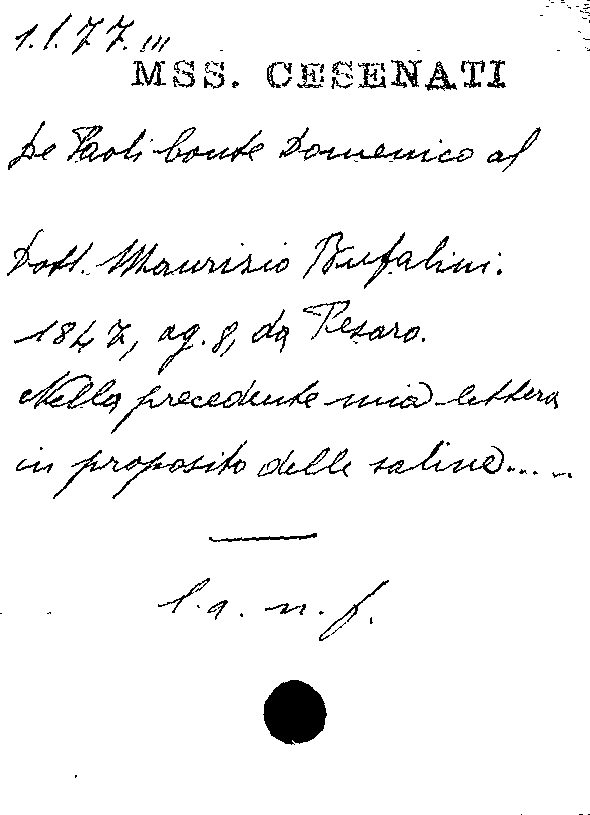 1.1.77.III
MSS. CESENATI
De Paoli conte Domenico al
Dott. Maurizio Bufalini.
1847, ag. 8, da Pesaro.
Nella precedente mia lettera
in proposito delle saline.....
l. a. n. f.